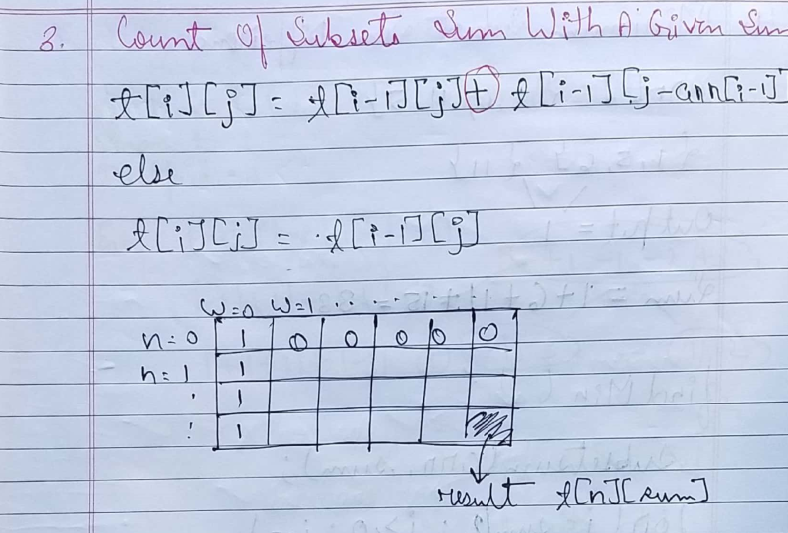 3. Count Of Subsets Sum With A Given Sum
t[i][j] = t[i-1][j] + t[i-1][j-arr[i-1]
else
t[i][j] = t[i-1][j]
W=0 W=1 . . . . . . .
n=0 1 0 0 0 0 0
n=1 1
. 1
: 1
result t[n][sum]